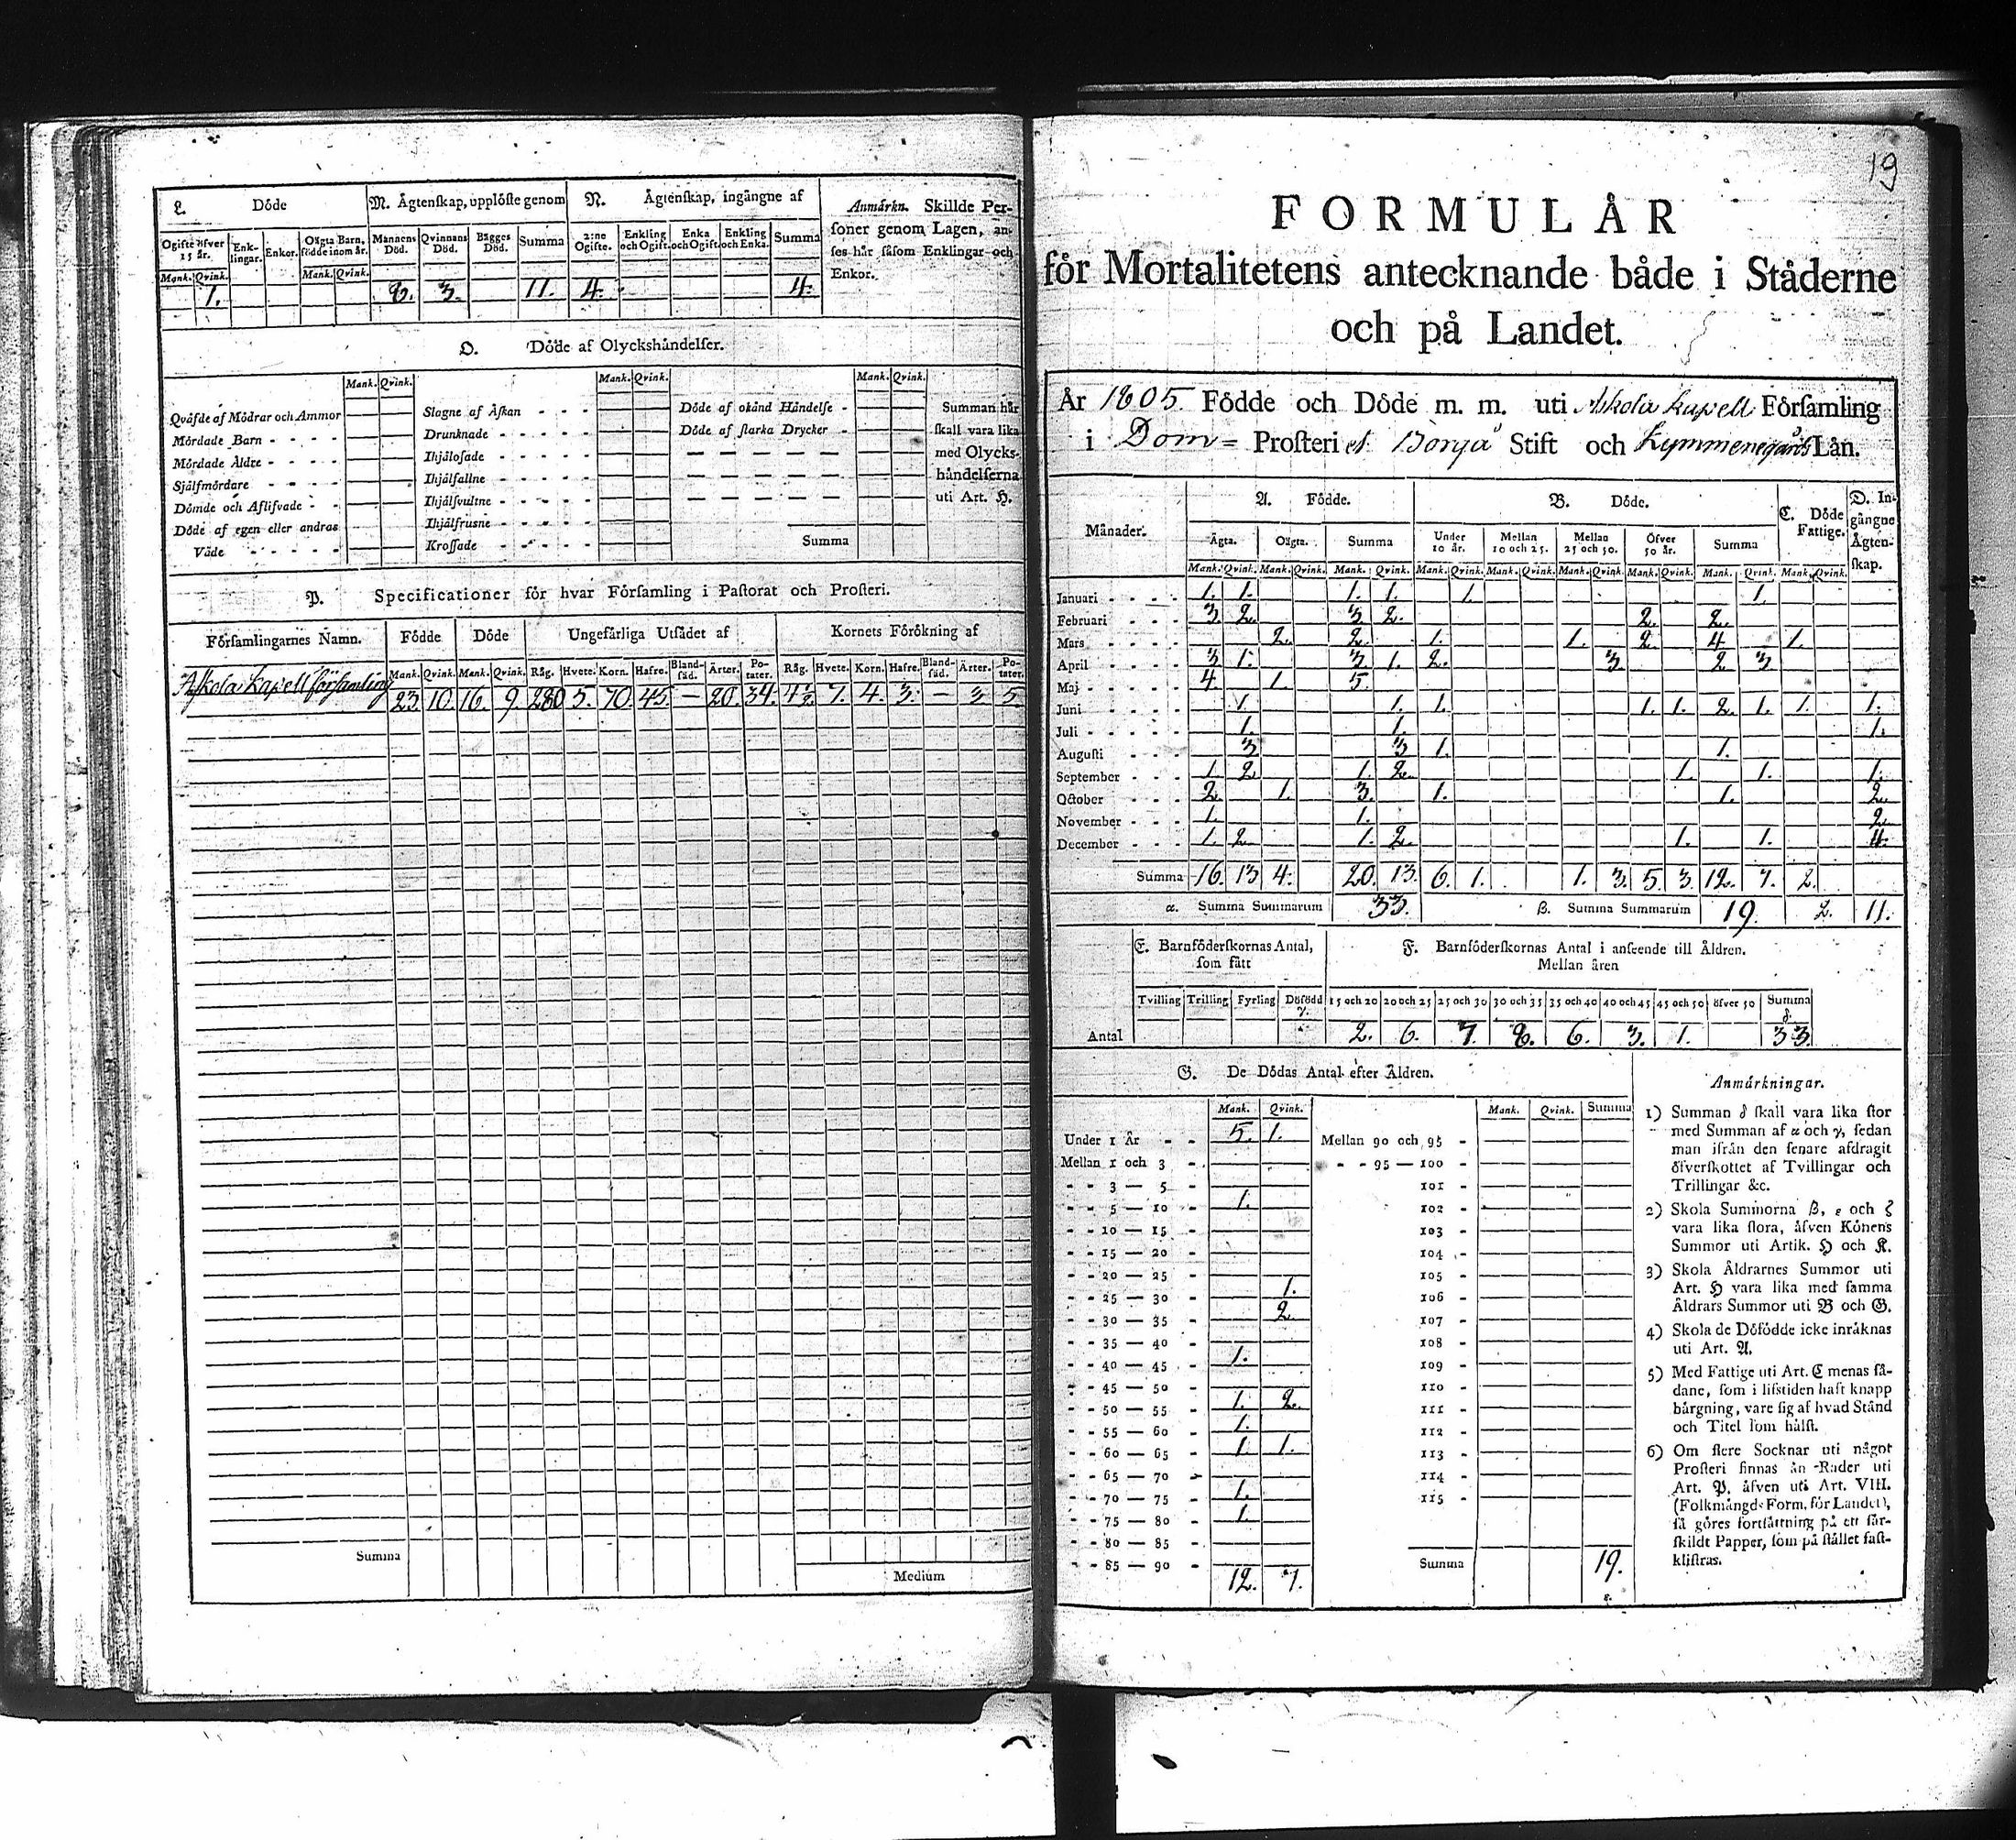 L. Döde
M. Ägtenskap, upplöste genom
N. Ägtenskap, ingångne af
Anmärkn. Skillde Per-
soner genom Lagen, an-
ses här såsom Enklingar och
Enkor.
Ogifte öfver 15 år. Enk-lingar. Enkor. Oägta Barn, födde inom år. Mannens Död. Qvinnans Död. Bägges Död. Summa 2:ne Ogifte. Enkling och Ogift. Enka och Ogift. Enkling och Enka. Summa
Mank. Qvink. Mank. Qvink.
1. 8. 3. 11. 4. 4.
O. Döde af Olyckshändelser.
Mank. Qvink. Mank. Qvink. Mank. Qvink.
Qväfde af Mödrar och Ammor
Mördade Barn
Mördade Äldre
Sjelfmördare
Dömde och Aflifvade
Döde af egen eller andras
Våde
Slagne af Åskan
Drunknade
Ihjälosade
Ihjälfallne
Ihjälsvultne
Ihjälfrusne
Krossade
Döde af okänd Händelse
Döde af starka Drycker
Summa
Summan här
skall vara lika
med Olycks-
händelserna
uti Art. H.
P. Specificationer för hvar Församling i Pastorat och Prosteri.
Församlingarnes Namn. Födde Döde Ungefärliga Utsädet af Kornets Förökning af
Mank. Qvink. Mank. Qvink. Råg. Hvete. Korn. Hafre. Bland-säd. Ärter. Po-tater. Råg. Hvete. Korn. Hafre. Bland-säd. Ärter. Po-tater.
Askola Kapell församling 23. 10. 16. 9. 280 5. 70. 45. — 20. 34. 4½. 7. 4. 3. — 3. 5.
Summa
Medium
19
FORMULÄR
för Mortalitetens antecknande både i Städerne
och på Landet.
År 1805. Födde och Döde m. m. uti Askola Kapell Församling
i Dom= Prosteri af Borgå Stift och Kymmenegårds Län.
Månader. A. Födde. B. Döde. C. Döde Fattige. D. In-gångne Ägten-skap.
Ägta. Oägta. Summa Under 10 år. Mellan 10 och 25. Mellan 25 och 50. Öfver 50 år. Summa
Mank. Qvink. Mank. Qvink. Mank. Qvink. Mank. Qvink. Mank. Qvink. Mank. Qvink. Mank. Qvink. Mank. Qvink. Mank. Qvink.
Januari 1. 1. 1. 1. 1. 1.
Februari 3 2. 3 2. 2. 2.
Mars 2. 2. 1. 1. 2. 4 1.
April 3 1. 3 1. 2. 3 2 3
Maj 4. 1. 5.
Juni 1. 1. 1. 1. 1. 2. 1. 1. 1.
Juli 1. 1. 1.
Augusti 3 3 1. 1.
September 1. 2 1. 2. 1. 1. 1.
October 2. 1. 3. 1. 1. 2.
November 1. 1. 2
December 1. 2. 1. 2. 1. 1. 4.
Summa 16. 13 4. 20. 13. 6. 1. 1. 3. 5. 3. 12. 7. 2.
α. Summa Summarum 33. β. Summa Summarum 19. 2. 11.
E. Barnföderskornas Antal,
som fått
F. Barnföderskornas Antal i anseende till Åldren.
Mellan åren
Tvilling Trilling Fyrling Döfödd γ. 15 och 20 20 och 25 25 och 30 30 och 35 35 och 40 40 och 45 45 och 50 öfver 50 Summa δ.
Antal 2. 6. 7. 8. 6. 3. 1. 33.
G. De Dödas Antal efter Åldren.
Mank. Qvink. Mank. Qvink. Summa
Under 1 År 5. 1. Mellan 90 och 95
Mellan 1 och 3 95 — 100
3 — 5 101
5 — 10 1. 102
10 — 15 103
15 — 20 104
20 — 25 105
25 — 30 1. 106
30 — 35 2. 107
35 — 40 108
40 — 45 1. 109
45 — 50 110
50 — 55 1. 2. 111
55 — 60 1. 112
60 — 65 1. 1. 113
65 — 70 114
70 — 75 1. 115
75 — 80 1.
80 — 85
85 — 90 Summa 19.
12. 7. ε.
Anmärkningar.
1) Summan δ skall vara lika stor
med Summan af α och γ, sedan
man ifrån den senare afdragit
öfverskottet af Tvillingar och
Trillingar &c.
2) Skola Summorna β, ε och ζ
vara lika stora, äfven Könens
Summor uti Artik. H och K.
3) Skola Åldrarnes Summor uti
Art. H vara lika med samma
Åldrars Summor uti B och G.
4) Skola de Döfödde icke inräknas
uti Art. A.
5) Med Fattige uti Art. C menas så-
dane, som i lifstiden haft knapp
bärgning, vare sig af hvad Stånd
och Titel som hälst.
6) Om flere Socknar uti något
Prosteri finnas än Rader uti
Art. P. äfven uti Art. VIII.
(Folkmängds Form. för Landet),
så göres fortsättning på ett sär-
skildt Papper, som på stället fast-
klistras.